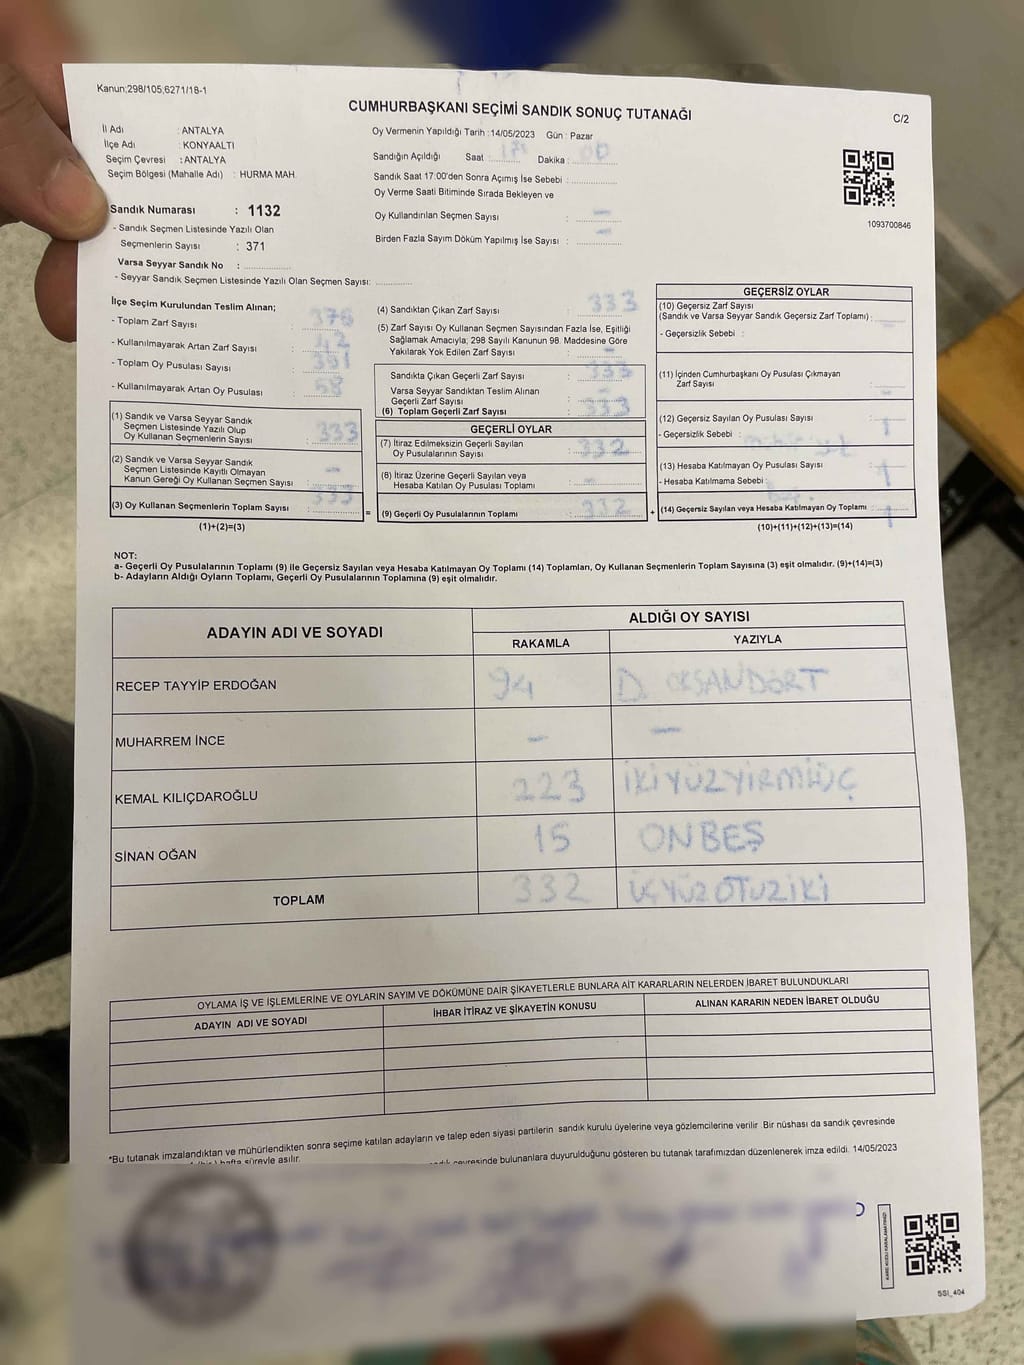 Kanun;298/105;6271/18-1
CUMHURBAŞKANI SEÇİMİ SANDIK SONUÇ TUTANAĞI
C/2
İl Adı : ANTALYA
İlçe Adı : KONYAALTI
Seçim Çevresi : ANTALYA
Seçim Bölgesi (Mahalle Adı) : HURMA MAH.
Sandık Numarası : 1132
- Sandık Seçmen Listesinde Yazılı Olan
Seçmenlerin Sayısı : 371
Varsa Seyyar Sandık No :
- Seyyar Sandık Seçmen Listesinde Yazılı Olan Seçmen Sayısı:
Oy Vermenin Yapıldığı Tarih :14/05/2023 Gün : Pazar
Sandığın Açıldığı Saat : Dakika : 00
Sandık Saat 17:00'den Sonra Açımış İse Sebebi :
Oy Verme Saati Bitiminde Sırada Bekleyen ve
Oy Kullandırılan Seçmen Sayısı : -
Birden Fazla Sayım Döküm Yapılmış İse Sayısı : -
1093700846
İlçe Seçim Kurulundan Teslim Alınan;
- Toplam Zarf Sayısı : 376
- Kullanılmayarak Artan Zarf Sayısı :
- Toplam Oy Pusulası Sayısı :
- Kullanılmayarak Artan Oy Pusulası : 58
(1) Sandık ve Varsa Seyyar Sandık
Seçmen Listesinde Yazılı Olup
Oy Kullanan Seçmenlerin Sayısı : 333
(2) Sandık ve Varsa Seyyar Sandık
Seçmen Listesinde Kayıtlı Olmayan
Kanun Gereği Oy Kullanan Seçmen Sayısı : -
(3) Oy Kullanan Seçmenlerin Toplam Sayısı : 333
(1)+(2)=(3)
(4) Sandıktan Çıkan Zarf Sayısı : 333
(5) Zarf Sayısı Oy Kullanan Seçmen Sayısından Fazla İse, Eşitliği
Sağlamak Amacıyla; 298 Sayılı Kanunun 98. Maddesine Göre
Yakılarak Yok Edilen Zarf Sayısı : -
Sandıkta Çıkan Geçerli Zarf Sayısı : 333
Varsa Seyyar Sandıktan Teslim Alınan
Geçerli Zarf Sayısı : -
(6) Toplam Geçerli Zarf Sayısı : 333
GEÇERLİ OYLAR
(7) İtiraz Edilmeksizin Geçerli Sayılan
Oy Pusulalarının Sayısı : 332
(8) İtiraz Üzerine Geçerli Sayılan veya
Hesaba Katılan Oy Pusulası Toplamı : -
= (9) Geçerli Oy Pusulalarının Toplamı : 332
GEÇERSİZ OYLAR
(10) Geçersiz Zarf Sayısı
(Sandık ve Varsa Seyyar Sandık Geçersiz Zarf Toplamı) : -
- Geçersizlik Sebebi :
(11) İçinden Cumhurbaşkanı Oy Pusulası Çıkmayan
Zarf Sayısı : -
(12) Geçersiz Sayılan Oy Pusulası Sayısı : 1
- Geçersizlik Sebebi :
(13) Hesaba Katılmayan Oy Pusulası Sayısı :
- Hesaba Katılmama Sebebi :
+ (14) Geçersiz Sayılan veya Hesaba Katılmayan Oy Toplamı : 1
(10)+(11)+(12)+(13)=(14)
NOT:
a- Geçerli Oy Pusulalarının Toplamı (9) ile Geçersiz Sayılan veya Hesaba Katılmayan Oy Toplamı (14) Toplamları, Oy Kullanan Seçmenlerin Toplam Sayısına (3) eşit olmalıdır. (9)+(14)=(3)
b- Adayların Aldığı Oyların Toplamı, Geçerli Oy Pusulalarının Toplamına (9) eşit olmalıdır.
ADAYIN ADI VE SOYADI
ALDIĞI OY SAYISI
RAKAMLA YAZIYLA
RECEP TAYYİP ERDOĞAN 94 D OKSANDÖRT
MUHARREM İNCE - -
KEMAL KILIÇDAROĞLU 223 İKİYÜZYİRMİÜÇ
SİNAN OĞAN 15 ONBEŞ
TOPLAM 332 ÜÇYÜZOTUZİKİ
OYLAMA İŞ VE İŞLEMLERİNE VE OYLARIN SAYIM VE DÖKÜMÜNE DAİR ŞİKAYETLERLE BUNLARA AİT KARARLARIN NELERDEN İBARET BULUNDUKLARI
ADAYIN ADI VE SOYADI İHBAR İTİRAZ VE ŞİKAYETİN KONUSU ALINAN KARARIN NEDEN İBARET OLDUĞU
*Bu tutanak imzalandıktan ve mühürlendikten sonra seçime katılan adayların ve talep eden siyasi partilerin sandık kurulu üyelerine veya gözlemcilerine verilir. Bir nüshası da sandık çevresinde
hafta süreyle asılır.
çevresinde bulunanlara duyurulduğunu gösteren bu tutanak tarafımızdan düzenlenerek imza edildi. 14/05/2023
SSİ_404